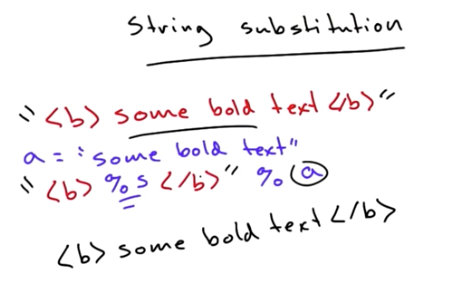 String substitution
"<b> some bold text </b>"
a = "some bold text"
"<b> %s </b>" % a
<b> some bold text </b>